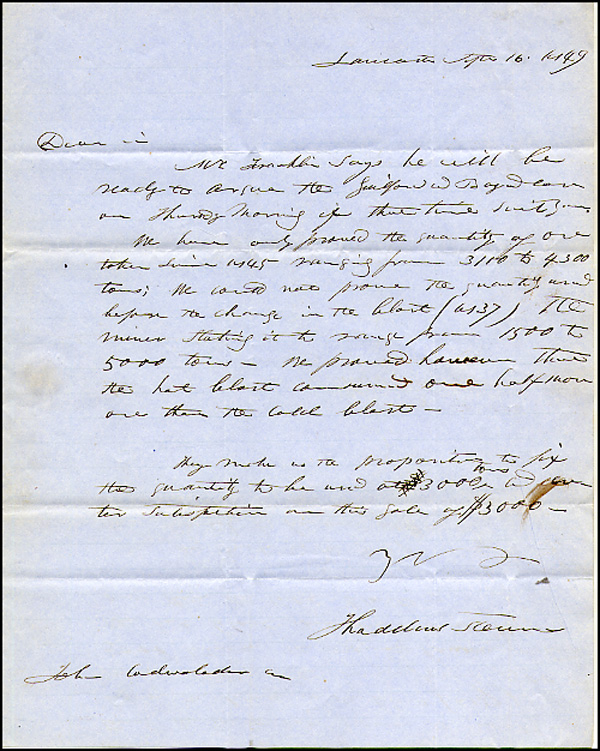 Lancaster Sept 16. 1849
Dear sir
Mr Franklin says he will be
ready to argue the case
on Thursday Morning if that time suits you.
We have only proved the quantity of ore
taken since 1845 ranging from 3100 to 4300
tons; We could not prove the quantity used
before the change in the blast (1837) the
miner stating it to range from 1500 to
5000 tons – We proved however that
the hot blast consumed one half more
ore than the cold blast –
They make us the proposition to fix
the quantity to be used at 3000 tons and
satisfaction on the sale of $3000 –
Thaddeus Stevens
John Cadwalader